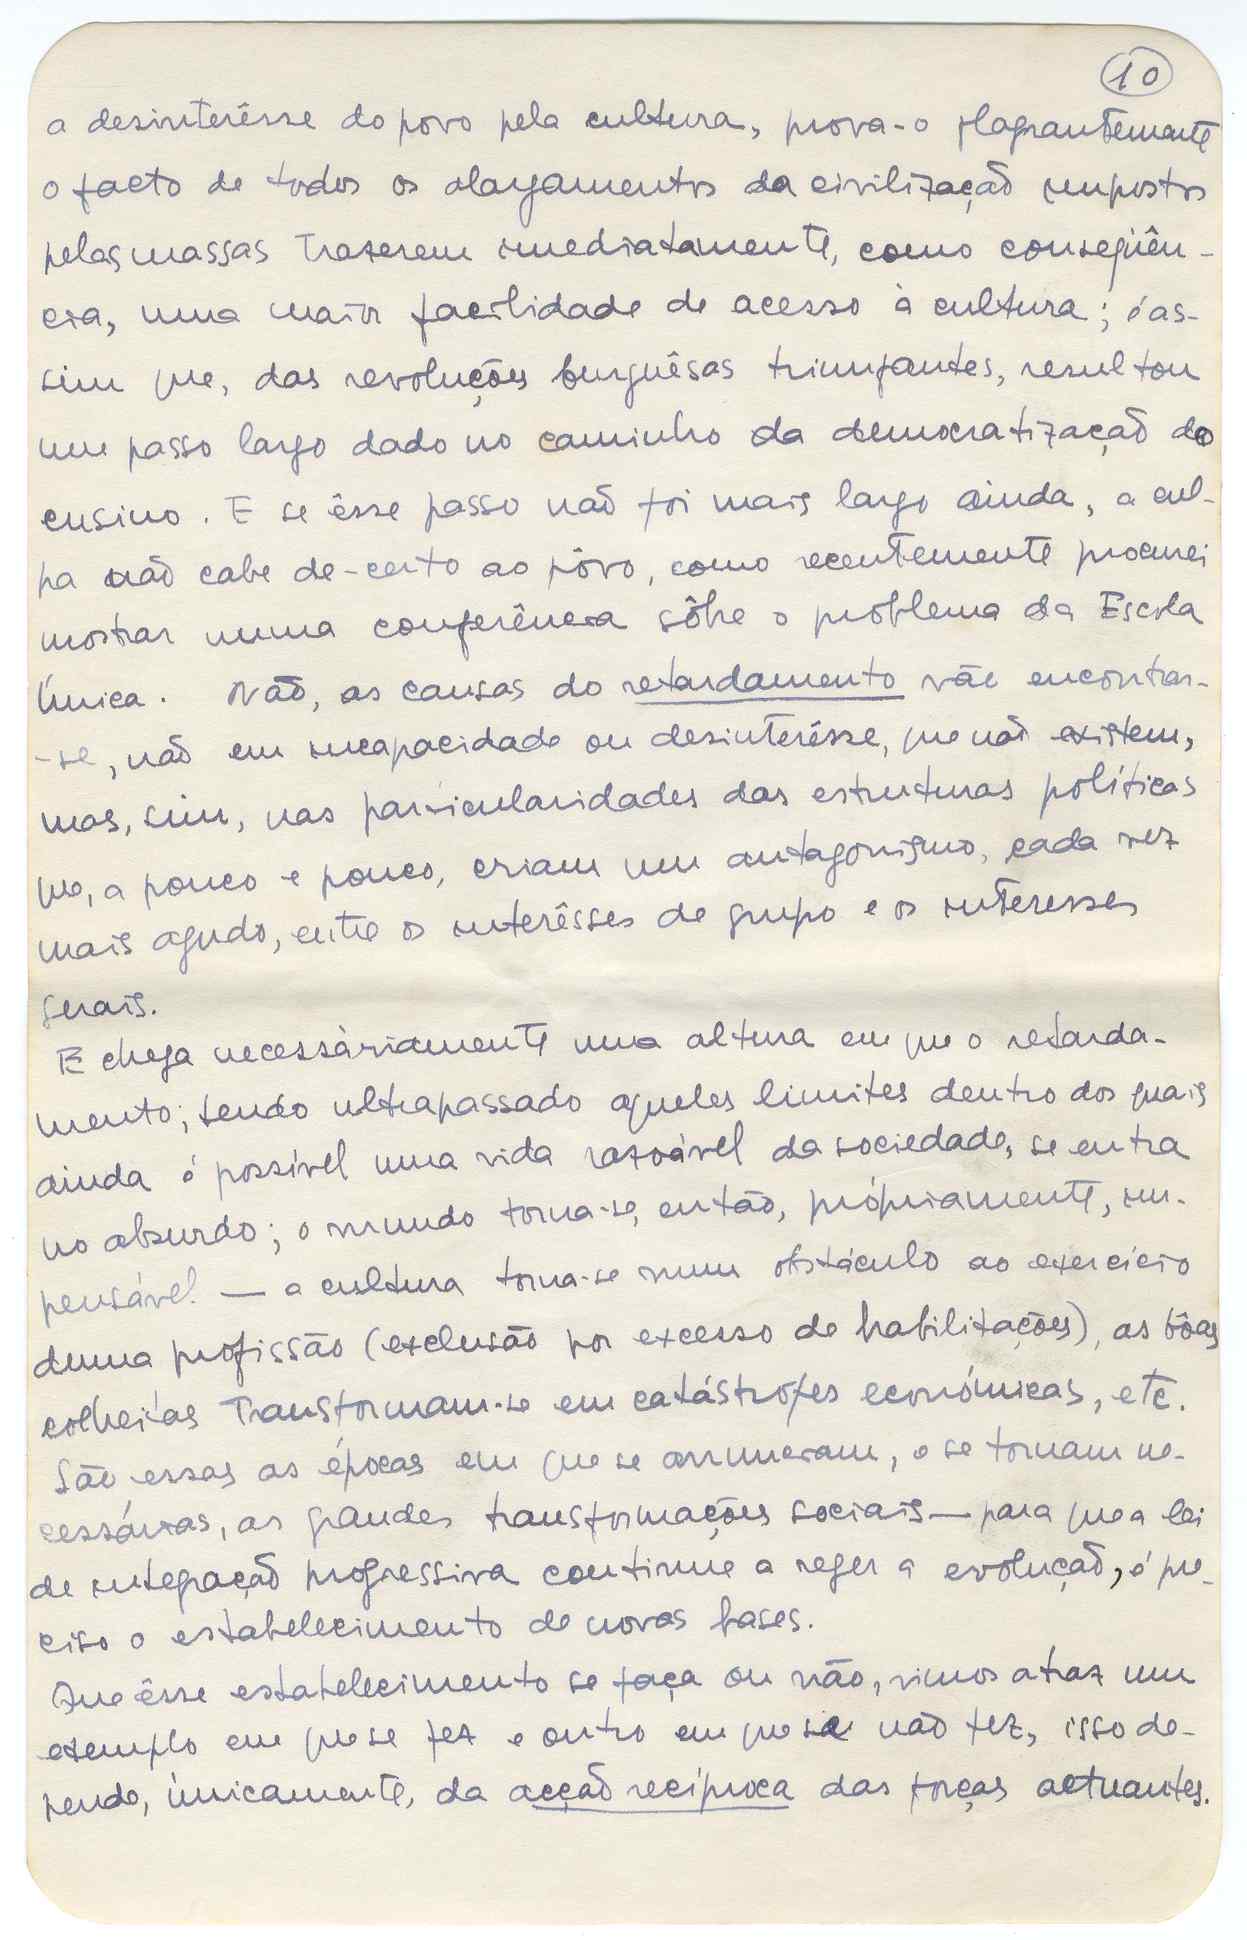 10
a desinterêsse do povo pela cultura, prova-o flagrantemente
o facto de todos os alargamentos da civilização impostos
pelas massas trazerem imediatamente, como conseqüên-
cia, uma maior facilidade de acesso à cultura; é as-
sim que, das revoluções burguêsas triunfantes, resultou
um passo largo dado no caminho da democratização do
ensino. E se êsse passo não foi mais largo ainda, a cul-
pa não cabe de-certo ao pôvo, como recentemente procurei
mostrar numa conferência sôbre o problema da Escola
Única. Não, as causas do retardamento vão encontrar-
-se, não em incapacidade ou desinterêsse, que não existem,
mas, sim, nas particularidades das estruturas políticas
que, a pouco e pouco, criam um antagonismo, cada vez
mais agudo, entre os interêsses de grupo e os interesses
gerais.
E chega necessàriamente uma altura em que o retarda-
mento; tendo ultrapassado aqueles limites dentro dos quais
ainda é possível uma vida razoável da sociedade, se entra
no absurdo; o mundo torna-se, então, pròpriamente, im-
pensável — a cultura torna-se num obstáculo ao exercício
duma profissão (exclusão por excesso de habilitações), as bôas
colheitas transformam-se em catástrofes económicas, etc.
São essas as épocas em que se anunciam, e se tornam ne-
cessárias, as grandes transformações sociais — para que a lei
de integração progressiva continue a reger a evolução, é pre-
ciso o estabelecimento de novas bases.
Que êsse estabelecimento se faça ou não, vimos atraz um
exemplo em que se fez e outro em que se não fez, isso de-
pende, ùnicamente, da acção recíproca das forças actuantes.